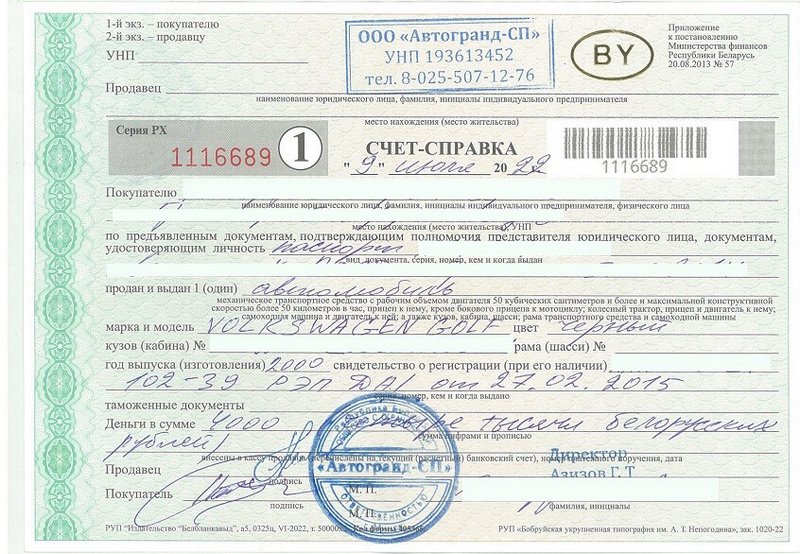 1-й экз. – покупателю
2-й экз. – продавцу
УНП
ООО «Автогранд-СП»
УНП 193613452
тел. 8-025-507-12-76
BY
Приложение
к постановлению
Министерства финансов
Республики Беларусь
20.08.2013 № 57
Продавец
наименование юридического лица, фамилия, инициалы индивидуального предпринимателя
место нахождения (место жительства)
Серия РХ
1116689
1
СЧЕТ-СПРАВКА
"9" июля 2022
1116689
Покупателю
наименование юридического лица, фамилия, инициалы индивидуального предпринимателя, физического лица
место нахождения (место жительства), УНП
по предъявленным документам, подтверждающим полномочия представителя юридического лица, документам,
удостоверяющим личность паспорт
вид документа, серия, номер, кем и когда выдан
продан и выдан 1 (один) автомобиль
механическое транспортное средство с рабочим объемом двигателя 50 кубических сантиметров и более и максимальной конструктивной
скоростью более 50 километров в час, прицеп к нему, кроме бокового прицепа к мотоциклу; колесный трактор, прицеп и двигатель к нему;
самоходная машина и двигатель к ней; а также кузов, кабина, шасси; рама транспортного средства и самоходной машины
марка и модель VOLKSWAGEN GOLF цвет черный
кузов (кабина) № рама (шасси) №
год выпуска (изготовления) 2000 свидетельство о регистрации (при его наличии)
102-39 РЭП ДАІ от 27.02.2015
серия, номер, кем и когда выдано
таможенные документы
Деньги в сумме 4000 тысячи белорусских
рублей)
сумма цифрами и прописью
внесены в кассу продавца (перечислены на текущий (расчетный) банковский счет), номер платежного поручения, дата
Продавец
подпись
«Автогранд-СП»
Директор
Азизов Г.Т
М. П.
Покупатель
подпись
М. П.
фамилия, инициалы
РУП "Издательство "Белбланкавыд", а5, 0325ц, VI-2022, т. 50000
РУП «Бобруйская укрупненная типография им. А. Т. Непогодина», зак. 1020-22